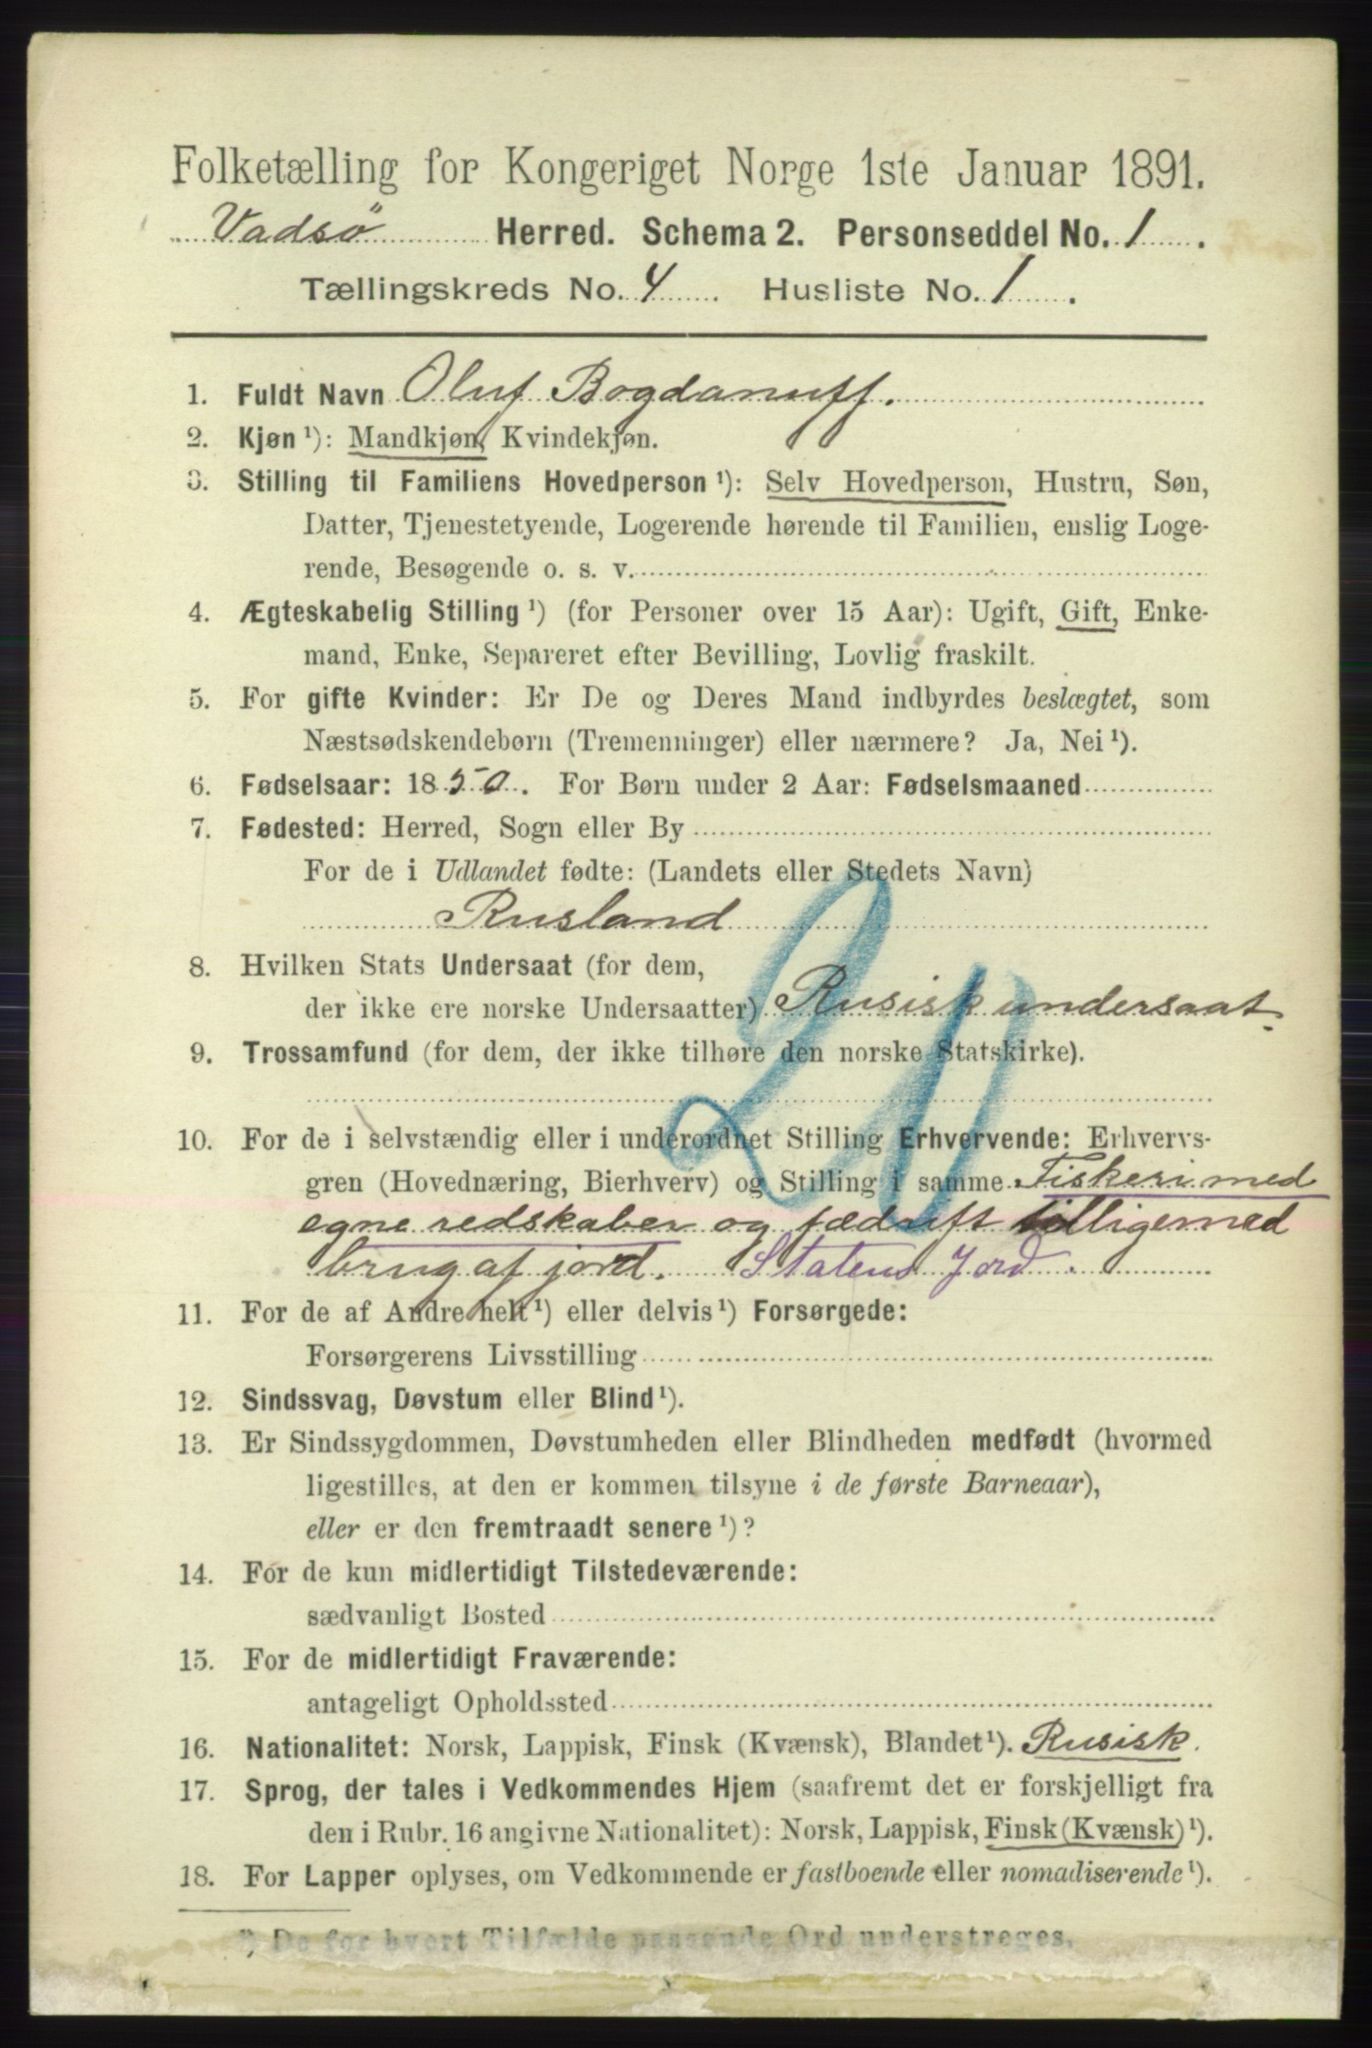 Folketælling for Kongeriget Norge 1ste Januar 1891.
Vadsø Herred. Schema 2. Personseddel No. 1.
Tællingskreds No. 4. Husliste No. 1.
1. Fuldt Navn Oluf Bogdanuff.
2. Kjøn ¹): Mandkjøn, Kvindekjøn.
3. Stilling til Familiens Hovedperson ¹): Selv Hovedperson, Hustru, Søn,
Datter, Tjenestetyende, Logerende hørende til Familien, enslig Loge-
rende, Besøgende o. s. v.
4. Ægteskabelig Stilling ¹) (for Personer over 15 Aar): Ugift, Gift, Enke-
mand, Enke, Separeret efter Bevilling, Lovlig fraskilt.
5. For gifte Kvinder: Er De og Deres Mand indbyrdes beslægtet, som
Næstsødskendebørn (Tremenninger) eller nærmere? Ja, Nei ¹).
6. Fødselsaar: 1850. For Børn under 2 Aar: Fødselsmaaned
7. Fødested: Herred, Sogn eller By
For de i Udlandet fødte: (Landets eller Stedets Navn)
Rusland
8. Hvilken Stats Undersaat (for dem,
der ikke ere norske Undersaatter) Rusisk undersaat.
9. Trossamfund (for dem, der ikke tilhøre den norske Statskirke).
10. For de i selvstændig eller i underordnet Stilling Erhvervende: Erhvervs-
gren (Hovednæring, Bierhverv) og Stilling i samme Fiskeri med
egne redskaber og fædrift tilligemed
brug af jord. Statens Jord.
11. For de af Andre helt ¹) eller delvis ¹) Forsørgede:
Forsørgerens Livsstilling
12. Sindssvag, Døvstum eller Blind ¹).
13. Er Sindssygdommen, Døvstumheden eller Blindheden medfødt (hvormed
ligestilles, at den er kommen tilsyne i de første Barneaar),
eller er den fremtraadt senere ¹)?
14. For de kun midlertidigt Tilstedeværende:
sædvanligt Bosted
15. For de midlertidigt Fraværende:
antageligt Opholdssted
16. Nationalitet: Norsk, Lappisk, Finsk (Kvænsk), Blandet ¹). Rusisk.
17. Sprog, der tales i Vedkommendes Hjem (saafremt det er forskjelligt fra
den i Rubr. 16 angivne Nationalitet): Norsk, Lappisk, Finsk (Kvænsk) ¹).
18. For Lapper oplyses, om Vedkommende er fastboende eller nomadiserende ¹).
¹) De for hvert Tilfælde passende Ord understreges.